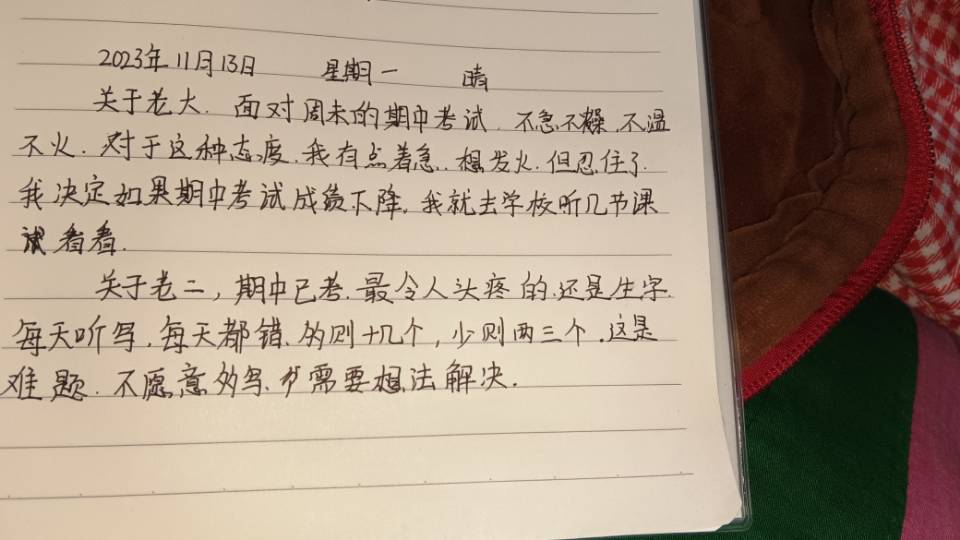 2023年11月13日 星期一 晴
关于老大. 面对周末的期中考试. 不急不躁. 不温
不火. 对于这种态度. 我有点着急.. 想发火. 但忍住了.
我决定如果期中考试成绩下降, 我就去学校听几节课
试看看.
关于老二, 期中已考. 最令人头疼的. 还是生字.
每天听写. 每天都错. 多则十几个, 少则两三个. 这是
难题. 不愿意多写. 需要想法解决.